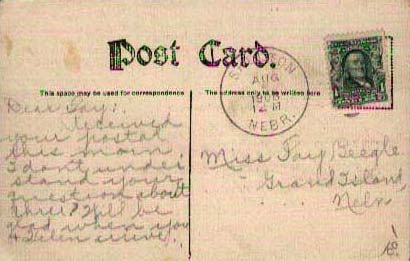 Post Card.
This space may be used for correspondence
The address only to be written here
AUG
NEBR.
Dear Fay:
Received
your postal
this morn
I don't under
stand your
question about
Will be
glad when you
& Helen arrive.
Miss Fay Beegle
Grand Island,
Nebr